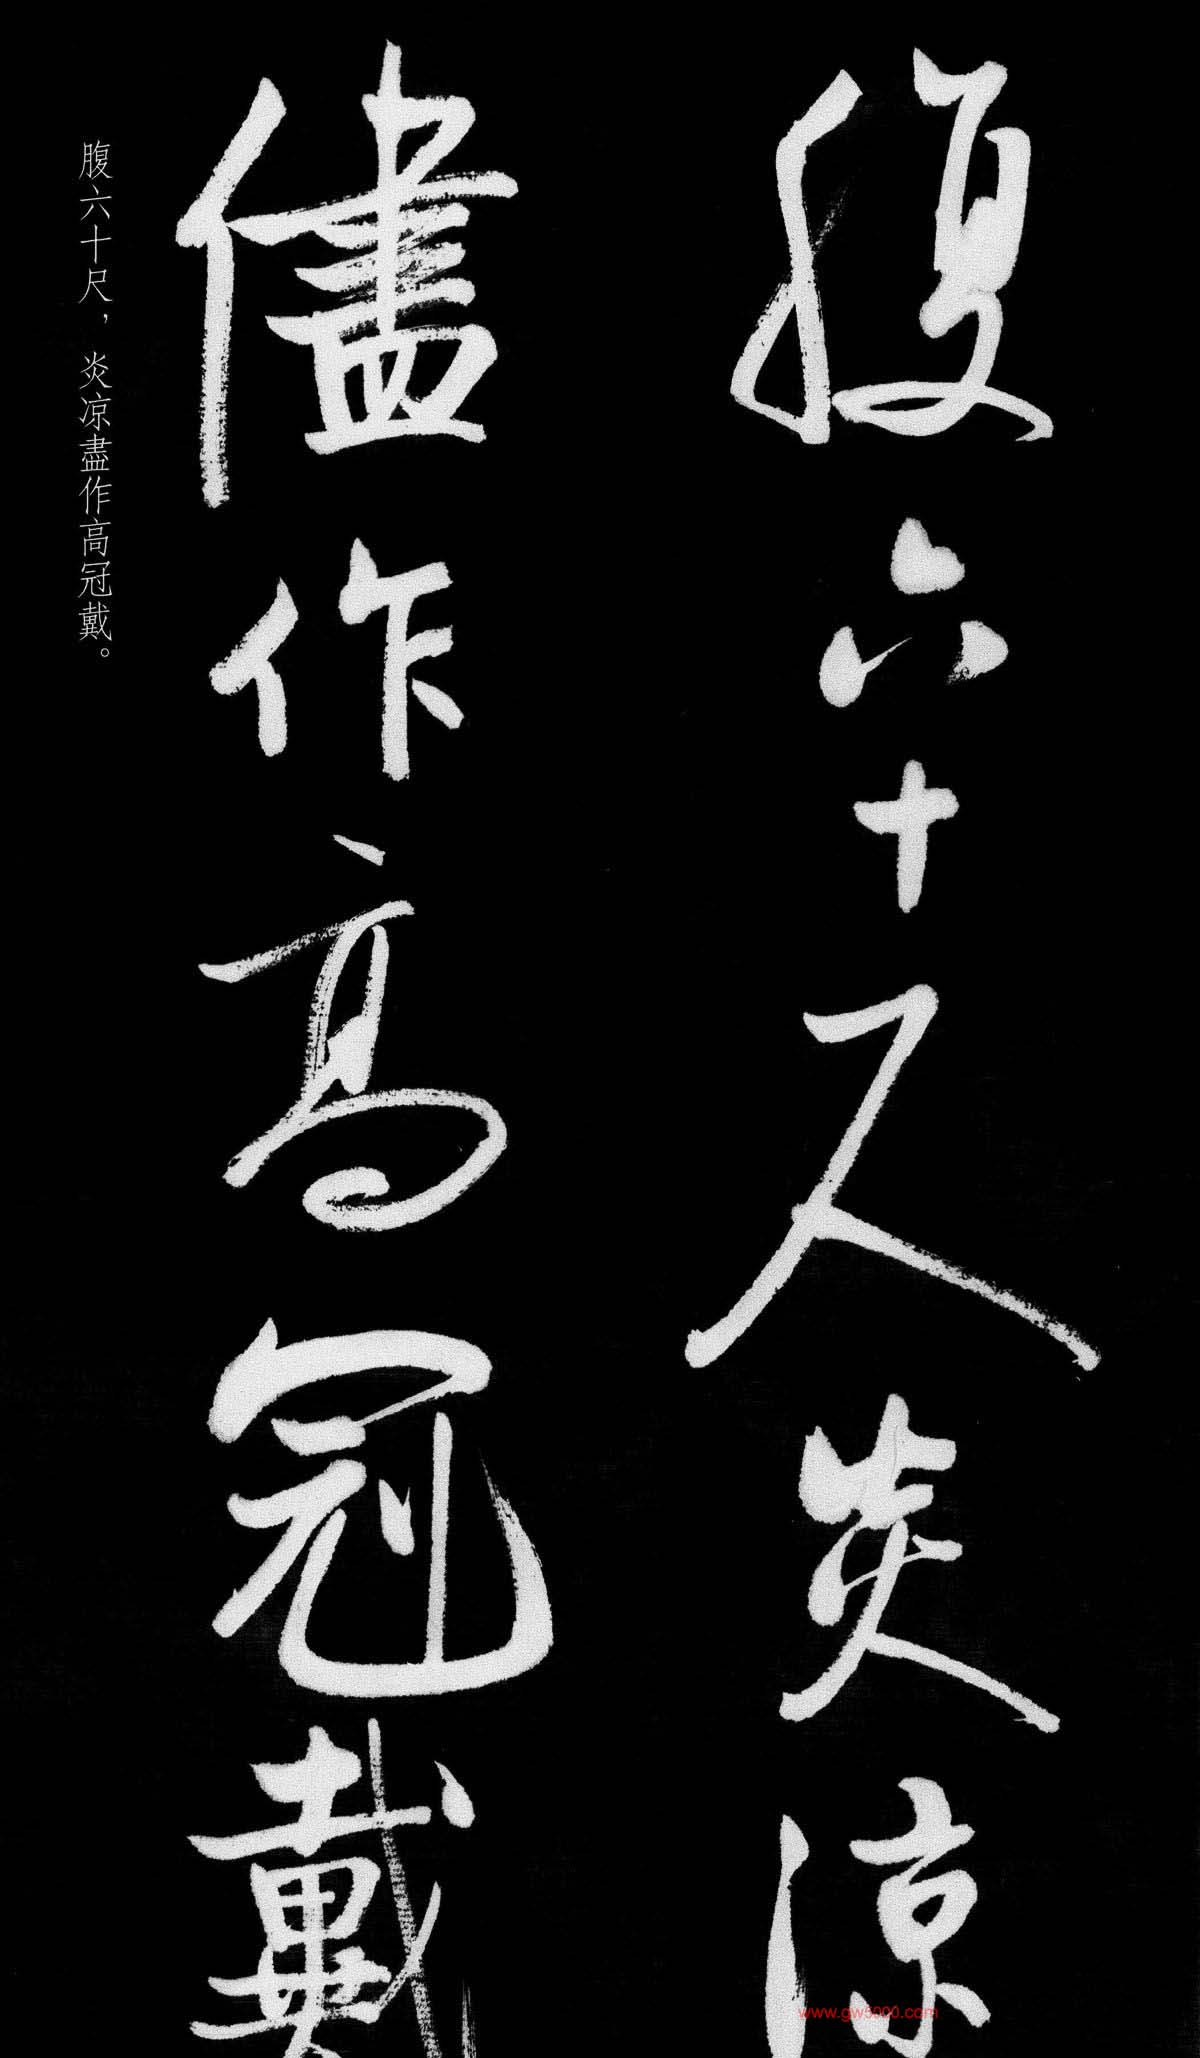 腹六十尺炎凉
儘作高冠戴
腹六十尺，炎凉盡作高冠戴。
www.gw5000.com